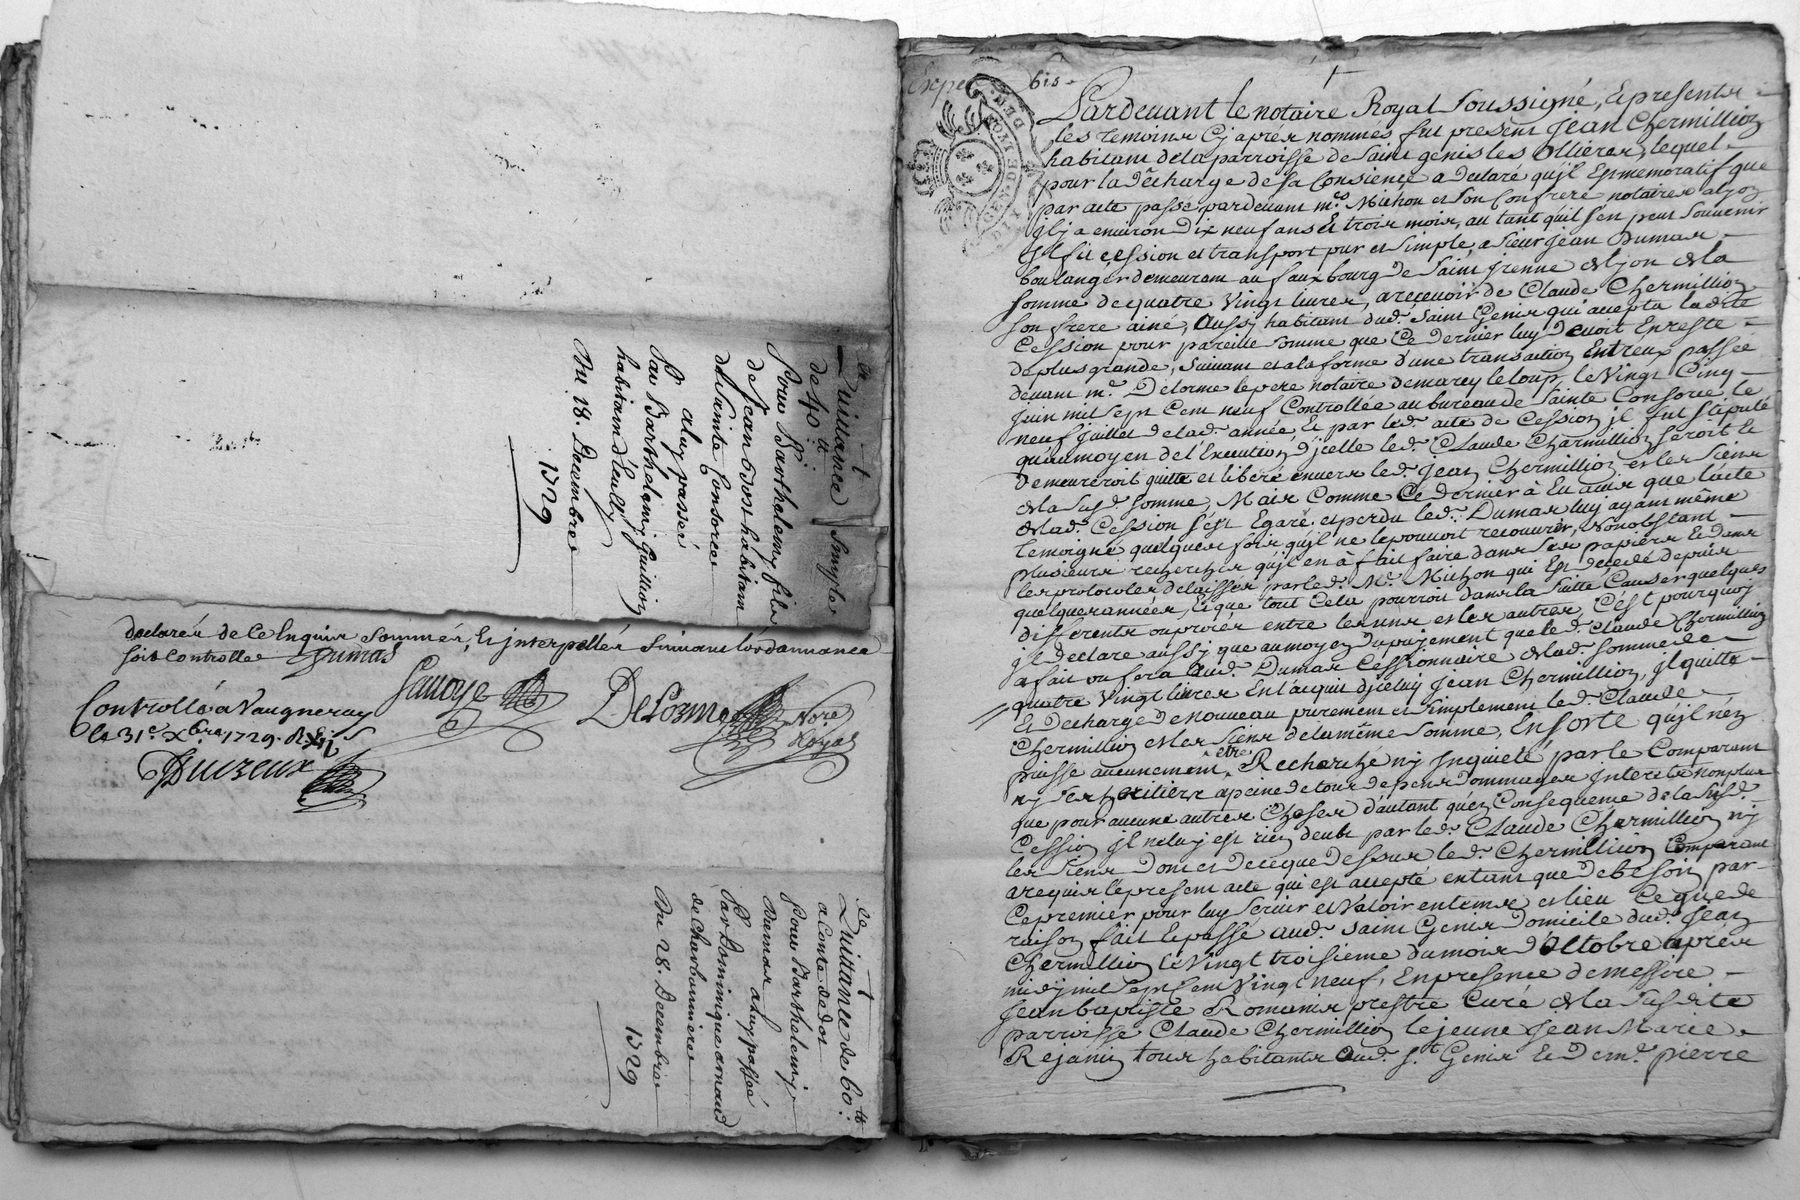 de
Quittance simple
de 40.tt
Pour Barthelemy fils
de Jean odost habitant
de Sainte Consorce
a luy passée
Par Barthelemy Guillion
habitant d'Eully
Du 28. Decembre
1729
declaréz de ce Enquis sommés, Et jnterpellés suivant lordonnance
soit Controllé Dumas
Sauoye DeLorme Nore Royal
Controllé a Vaugneray
le 31e. Xbre 1729. R.
Duizeux
de
Quittance de 60.tt
a Conte de dot
Pour Barthelemy
Dumas a luy passée
Par Dominique arnaud
de Charbonniere
Du 28. Decembre
1729
Expe bis
GEN. DE LYON
Pardeuant le notaire Royal soussigné, Et presents
les temoins Cy aprés nommés fut present Jean Chermillion
habitant de la parroisse de Saint genis les Ollieres, lequel
pour la décharge de sa Consience a declaré quil Est memoratif que
par acte passé pardeuant me. Michon et son Confrere notaires alyon
Jl y a environ dix neuf ans Et trois mois, au tant quil s'en peut souuenir
Jl fit cession et transport pur et simple, a sieur Jean Dumas
boulanger demeurant au fauxbourg de Saint jrenné de lyon de la
somme de quatre Vingt liures, a receuoir de Claude Chermillion
son frere ainé, Aussy habitant dud. Saint Genis qui accepta ladite
Cession pour pareille somme que Ce dernier luy deuoit En reste
de plus grande, Suivant et ala forme d'une transaction Entreux passée
deuant me. Delorme le pere notaire de marcy le loup, le Vingt Cinq
Juin mil sept Cent neuf Controllée au bureau de Sainte Consorce le
neuf juillet de lad. année, Et par led. acte de Cession jl fut stipulé
qu'au moyen de l'Execution d'jcelle led. Claude Charmillion seroit Et
demeureroit quitte et liberé enuers led. Jean Chermillion et les siens
de la susd. somme, Mais Comme Ce dernier à Eu auis que lacte
de lad. Cession s'est Egaré, et perdu led. Dumas luy ayant même
temoigné quelques fois quil ne le pouuoit recouurir, Nonobstant
plusieurs recherches quil en à fait faire dans ses papiers Et dans
les protocoles delaissés par led. Me. Michon qui Est decedé depuis
quelques années, Et que tout Cela pourroit dans la suitte Causer quelques
differents ou procés entre les uns et les autres, C'est pourquoy
jl declare aussy que au moyen du payement que led. Claude Chermillion
a fait ou fera aud. Dumas Cessionnaire de lad. somme de
quatre Vingt liures En l'acquit d'jceluy Jean Chermillion, jl quitte
Et decharge de nouueau purement et simplement led. Claude
Chermillion et les siens de la même somme, En sorte quil n'en
puisse aucunement être Recherché ny Jnquieté par le Comparant
ny ses heritiers apeine de tous depens dommages Jnterêts non plus
que pour aucune autres Choses d'autant qu'en Consequence de la susd.
Cession jl ne luy est rien deub par led. Claude Chermillion ny
les siens Dont et de ce que dessus led. Chermillion Comparant
a requis le present acte qui est accepté en tant que de besoin par
Ce premier pour luy seruir et Valoir en tems et lieu Ce que de
raison fait Et passé aud. saint Genis domicile dud. Jean
Chermillion le Vingt troisieme du mois d'Octobre aprés
midy mil sept cent Vingt neuf, En presence de messire
Jean baptiste Romanis prestre Curé de la susdite
parroisse Claude Chermillion le jeune Jean Marie
Rejanin tous habitants aud. st. Genis Et de me. pierre